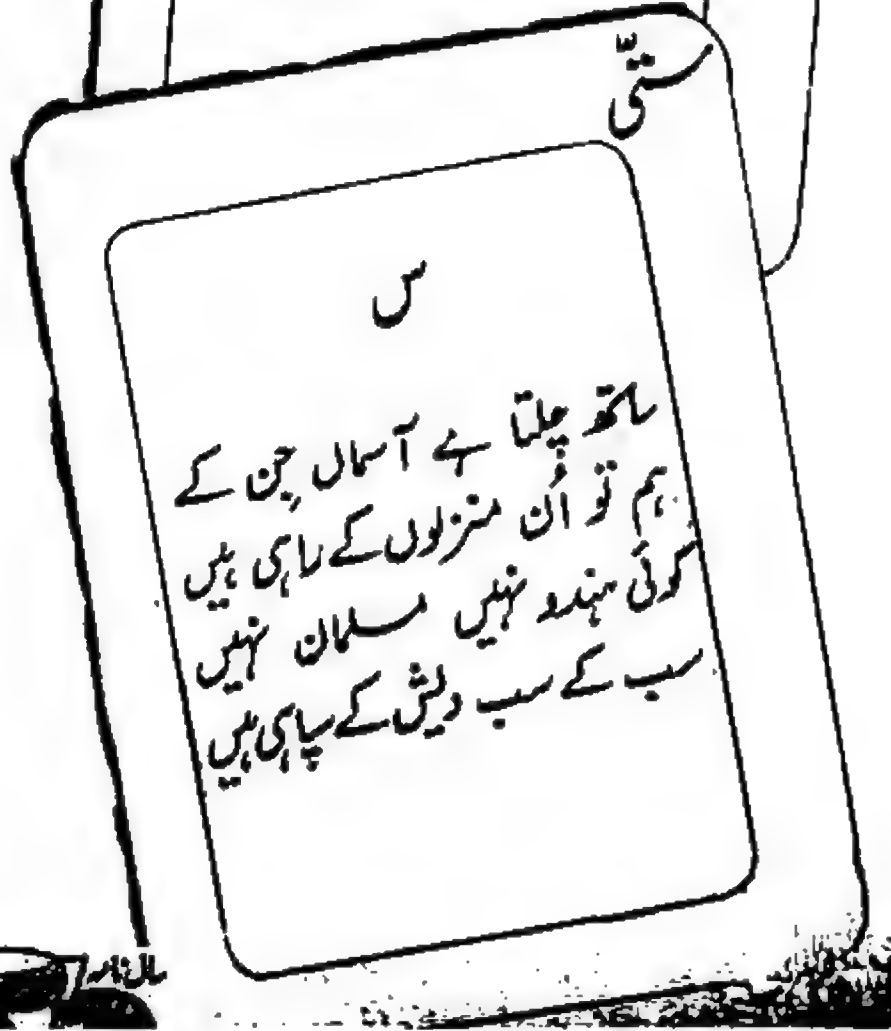 ستّی
س
ساتھ چلتا ہے آسماں جِن کے
ہم تو اُن منزلوں کے راہی ہیں
کوئی ہندو نہیں مسلمان نہیں
سب کے سب دیش کے سپاہی ہیں
سال نامہ